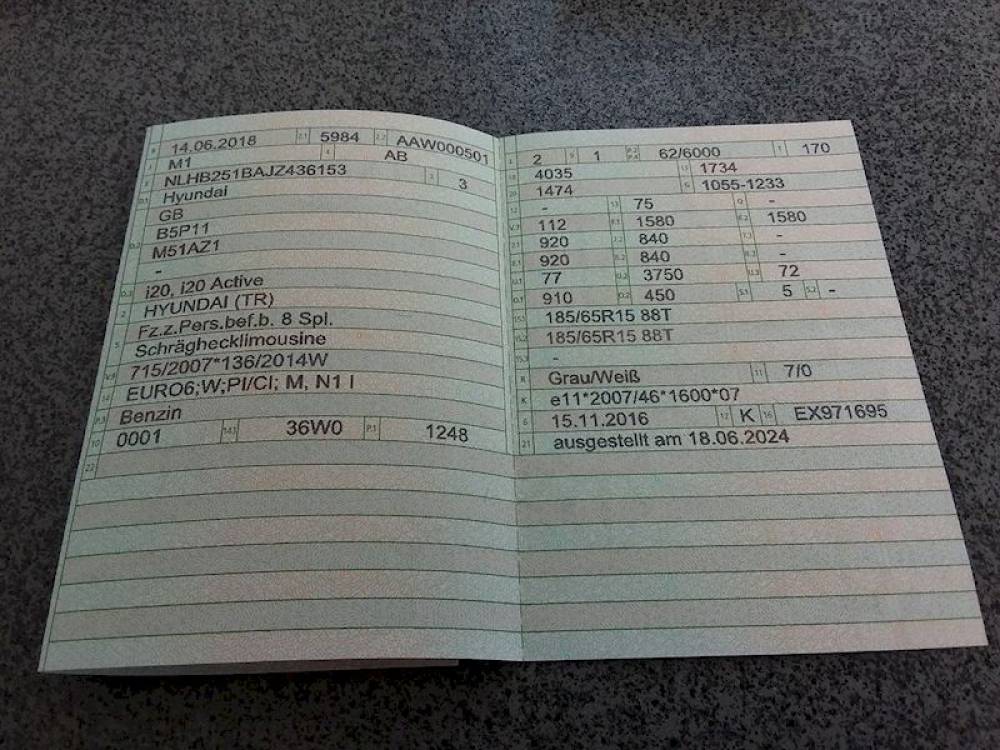 B 14.06.2018 2.1 5984 2.2 AAW000501
J M1 4 AB
E NLHB251BAJZ436153 3 3
D.1 Hyundai
GB
D.2 B5P11
M51AZ1
-
D.3 i20, i20 Active
2 HYUNDAI (TR)
5 Fz.z.Pers.bef.b. 8 Spl.
Schräghecklimousine
V.9 715/2007*136/2014W
14 EURO6;W;PI/CI; M, N1 I
P.3 Benzin
10 0001 14.1 36W0 P.1 1248
22
L 2 9 1 P.2 P.4 62/6000 T 170
18 4035 19 1734
20 1474 G 1055-1233
12 - 13 75 Q -
V.7 112 F.1 1580 F.2 1580
7.1 920 7.2 840 7.3 -
8.1 920 8.2 840 8.3 -
U.1 77 U.2 3750 U.3 72
O.1 910 O.2 450 S.1 5 S.2 -
15.1 185/65R15 88T
15.2 185/65R15 88T
15.3 -
R Grau/Weiß 11 7/0
K e11*2007/46*1600*07
6 15.11.2016 17 K 16 EX971695
21 ausgestellt am 18.06.2024